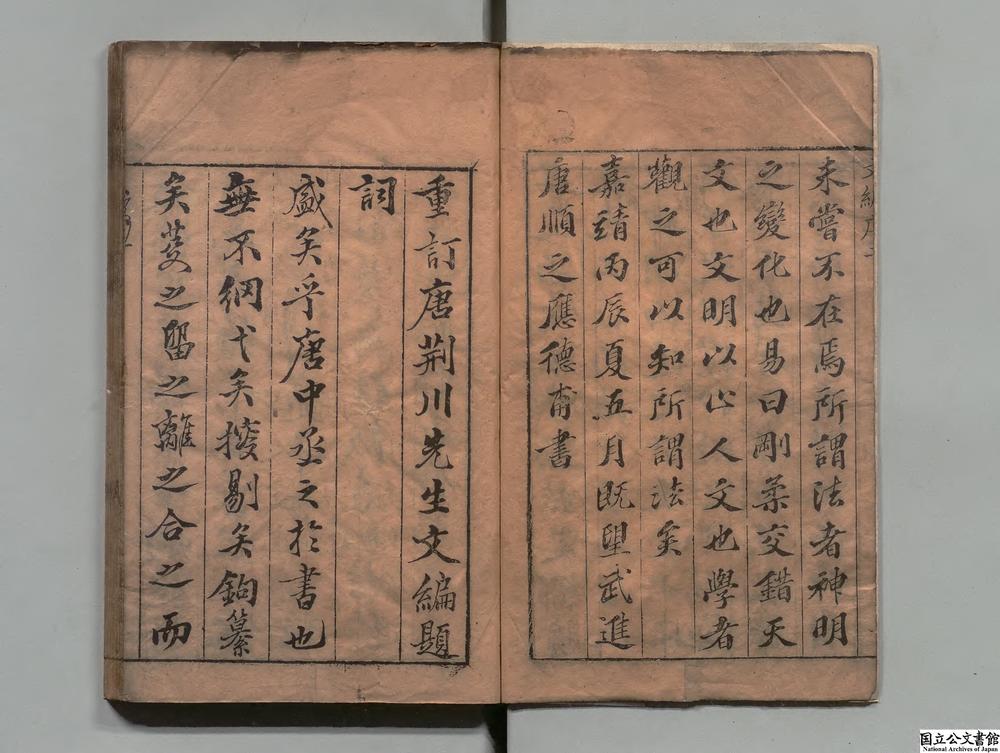 未嘗不在焉所謂法者神明
之變化也易曰剛柔交錯天
文也文明以止人文也學者
觀之可以知所謂法矣
嘉靖丙辰夏五月既望武進
唐順之應德甫書
重訂唐荊川先生文編題
詞
盛矣乎唐中丞之於書也
無不網弋矣捜剔矣鉤纂
矣芟之畱之離之合之而
国立公文書館
National Archives of Japan